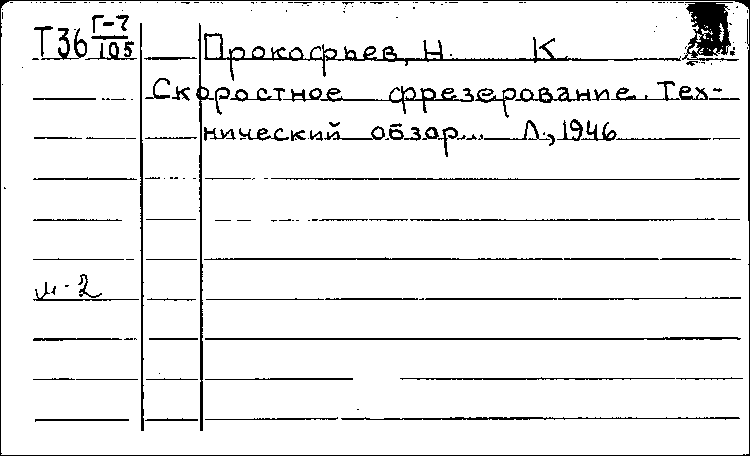 Т36 Г-7/105 Прокофьев, Н. К
Скоростное фрезерование. Тех-
нический обзор... Л., 1946
м-2